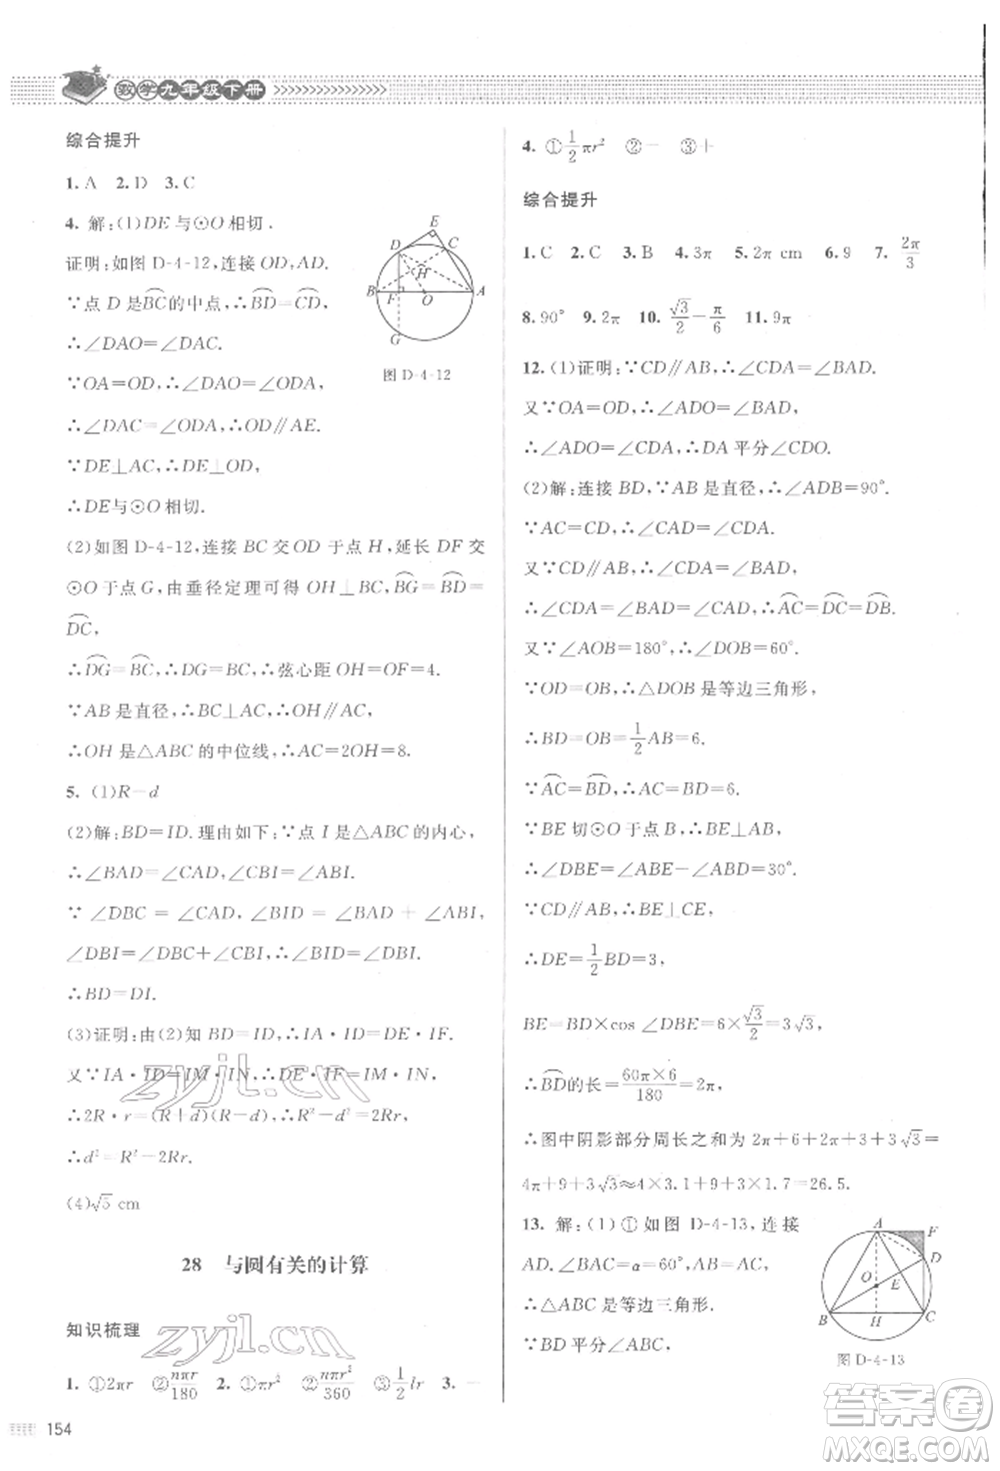 数学九年级下册
综合提升
1. A 2. D 3. C
4. 解:(1)DE与⊙O相切.
证明:如图D-4-12,连接OD,AD.
∵点D是⌒BC的中点,∴⌒BD=⌒CD,
∴∠DAO=∠DAC.
∵OA=OD,∴∠DAO=∠ODA,
∴∠DAC=∠ODA,∴OD∥AE.
∵DE⊥AC,∴DE⊥OD,
∴DE与⊙O相切.
图D-4-12
(2)如图D-4-12,连接BC交OD于点H,延长DF交
⊙O于点G,由垂径定理可得OH⊥BC,⌒BG=⌒BD=
⌒DC,
∴⌒DG=⌒BC,∴DG=BC,∴弦心距OH=OF=4.
∵AB是直径,∴BC⊥AC,∴OH∥AC,
∴OH是△ABC的中位线,∴AC=2OH=8.
5. (1)R-d
(2)解:BD=ID.理由如下:∵点I是△ABC的内心,
∴∠BAD=∠CAD,∠CBI=∠ABI.
∵∠DBC=∠CAD,∠BID=∠BAD+∠ABI,
∠DBI=∠DBC+∠CBI,∴∠BID=∠DBI,
∴BD=DI.
(3)证明:由(2)知BD=ID,∴IA·ID=DE·IF.
又∵IA·ID=IM·IN,∴DE·IF=IM·IN,
∴2R·r=(R+d)(R-d),∴R²-d²=2Rr,
∴d²=R²-2Rr.
(4)√5 cm
28 与圆有关的计算
知识梳理
1. ①2πr ②nπr/180 2. ①πr² ②nπr²/360 ③1/2 lr 3. 一
154
4. ①1/2 πr² ②一 ③十
综合提升
1. C 2. C 3. B 4. 3π 5. 2π cm 6. 9 7. 2π/3
8. 90° 9. 2π 10. √3/2-π/6 11. 9π
12. (1)证明:∵CD∥AB,∴∠CDA=∠BAD.
又∵OA=OD,∴∠ADO=∠BAD,
∴∠ADO=∠CDA,∴DA平分∠CDO.
(2)解:连接BD,∵AB是直径,∴∠ADB=90°.
∵AC=CD,∴∠CAD=∠CDA.
又∵∠CDA=∠BAD,
∴∠CDA=∠BAD=∠CAD,∴⌒AC=⌒DC=⌒DB.
又∵∠AOB=180°,∴∠DOB=60°.
∵OD=OB,∴△DOB是等边三角形,
∴BD=OB=1/2 AB=6.
∵⌒AC=⌒BD,∴AC=BD=6.
∵BE切⊙O于点B,∴BE⊥AB,
∴∠DBE=∠ABE-∠ABD=30°.
∵CD∥AB,∴BE⊥CE,
∴DE=1/2 BD=3,
BE=BD×cos∠DBE=6×√3/2=3√3,
∴⌒BD的长=60π×6/180=2π,
∴图中阴影部分周长之和为2π+6+2π+3+3√3=
4π+9+3√3≈4×3.1+9+3×1.7=26.5.
13. 解:(1)①如图D-4-13,连接
AD.∵∠BAC=α=60°,AB=AC,
∴△ABC是等边三角形.
∵BD平分∠ABC,
图D-4-13
zyjl.cn
zyjl.cn
答案圈
MXQE.COM